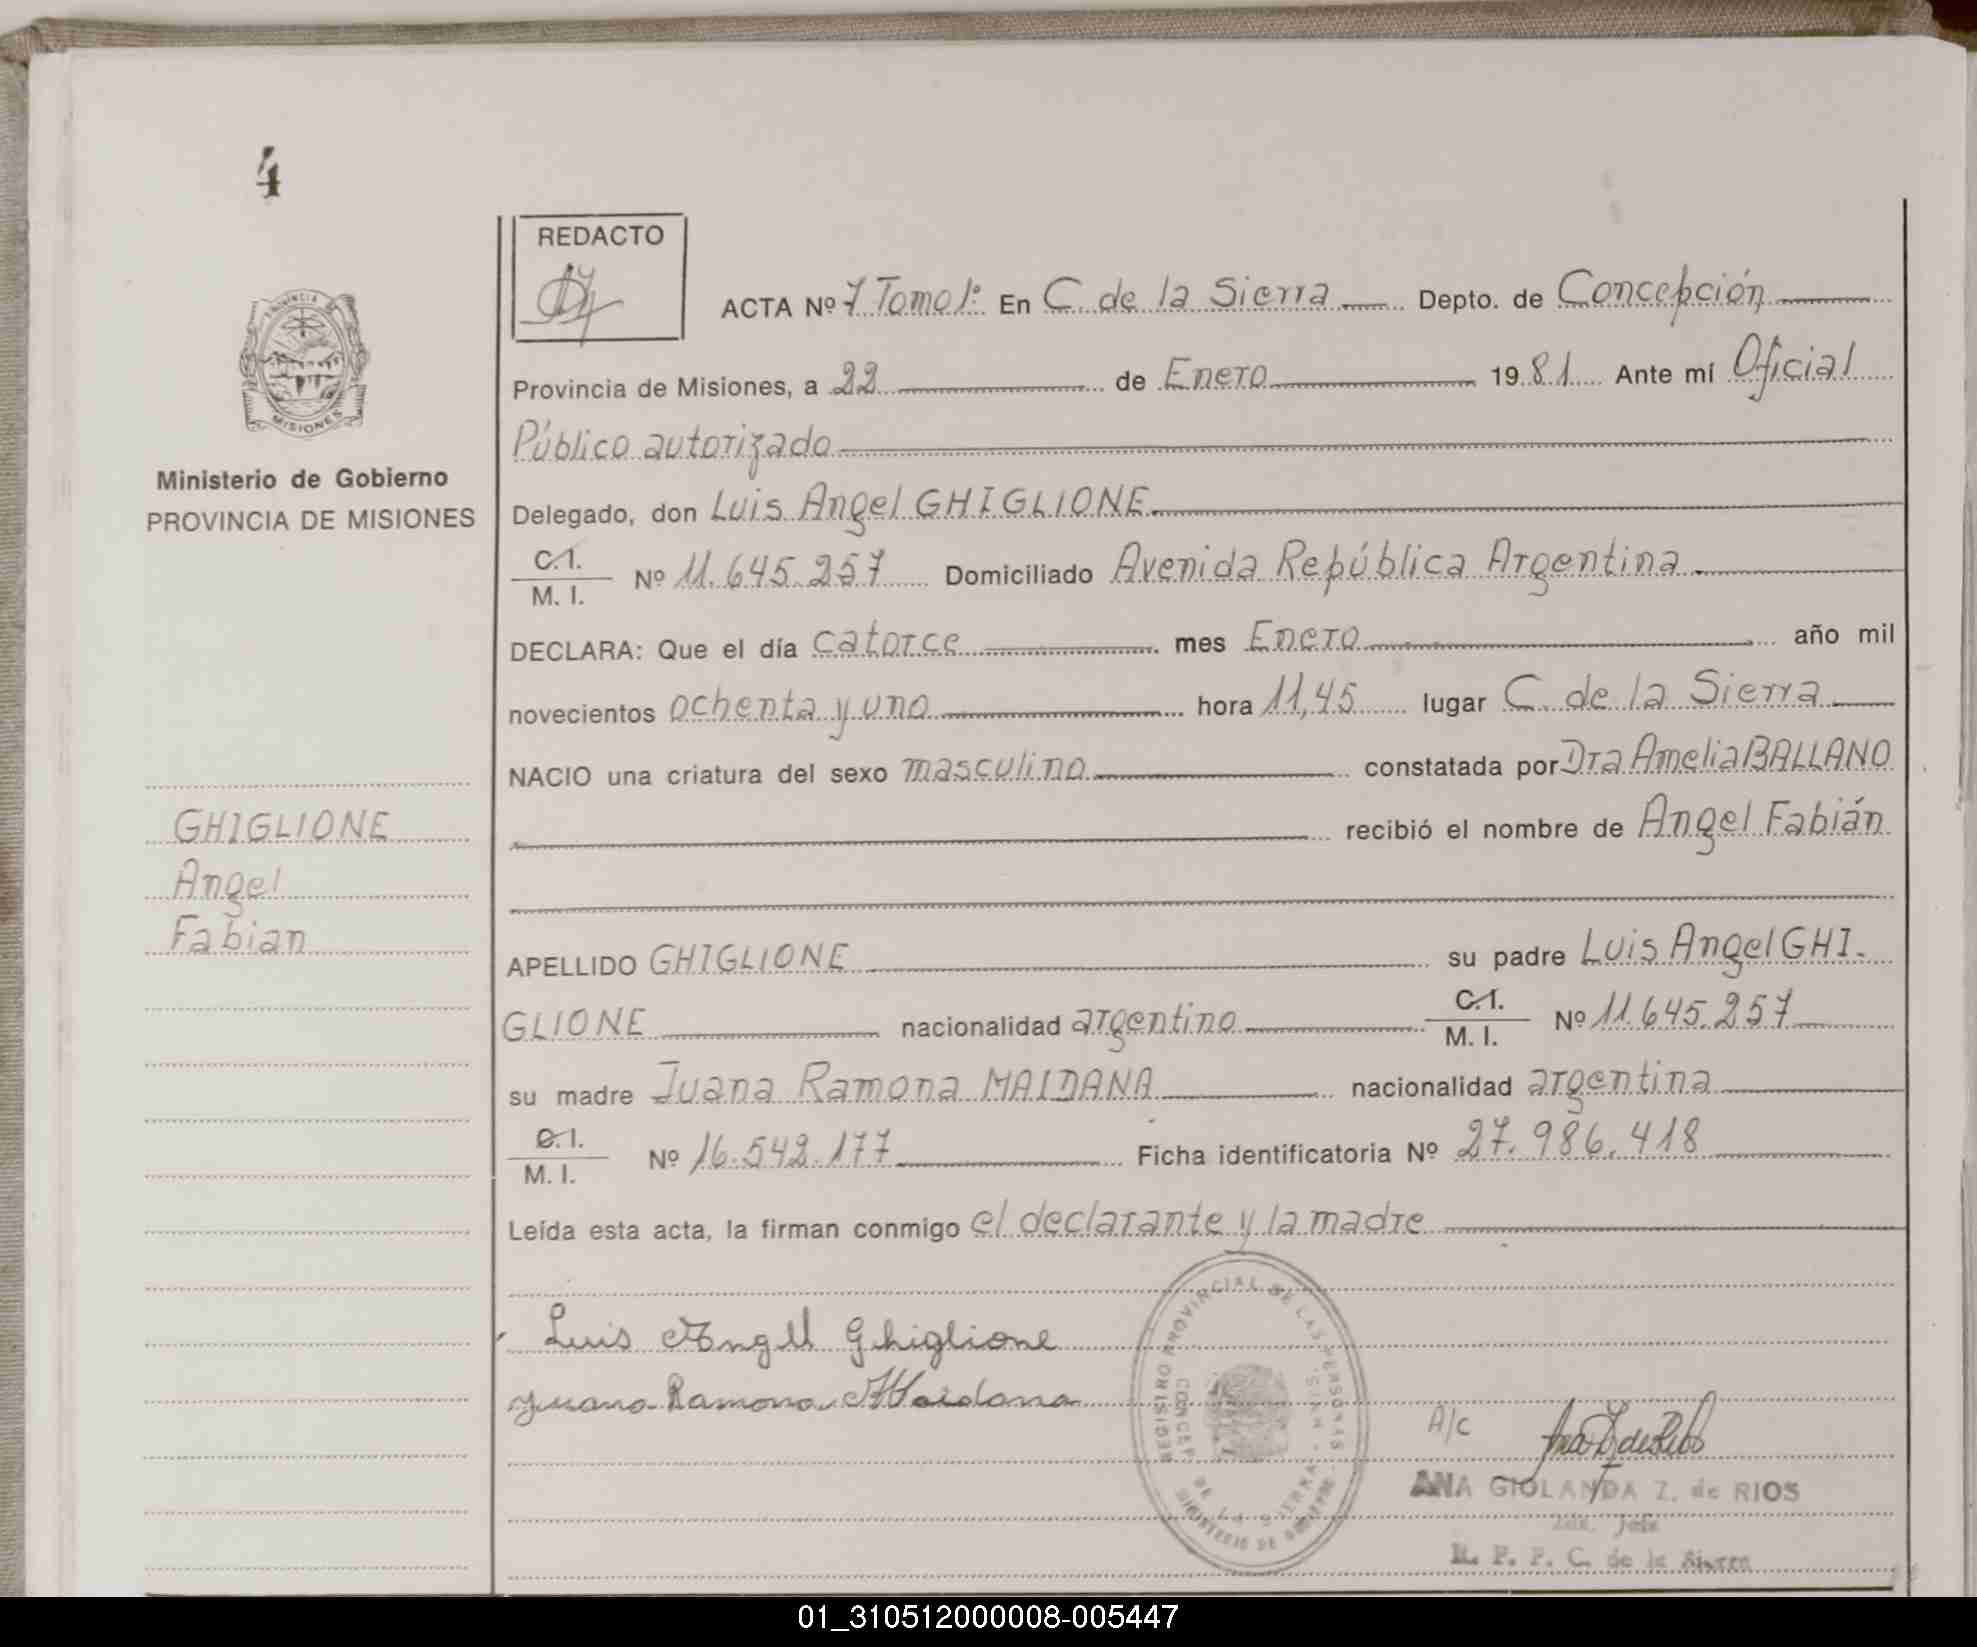 4
REDACTO
ACTA Nº 7 Tomo 1º En C. de la Sierra Depto. de Concepción
Provincia de Misiones, a 22 de Enero 1981 Ante mí Oficial
Público autorizado
Ministerio de Gobierno
PROVINCIA DE MISIONES
Delegado, don Luis Angel GHIGLIONE
C.I. / M. I. Nº 11.645.257 Domiciliado Avenida República Argentina
DECLARA: Que el día catorce mes Enero año mil
novecientos ochenta y uno hora 11,45 lugar C. de la Sierra
NACIO una criatura del sexo masculino constatada por Dra Amelia BALLANO
GHIGLIONE
Angel
Fabian
recibió el nombre de Angel Fabián
APELLIDO GHIGLIONE su padre Luis Angel GHI-
GLIONE nacionalidad argentino C.I. / M. I. Nº 11.645.257
su madre Juana Ramona MAIDANA nacionalidad argentina
C.I. / M. I. Nº 16.542.177 Ficha identificatoria Nº 27.986.418
Leída esta acta, la firman conmigo el declarante y la madre
Luis Angel Ghiglione
Juana Ramona Maidana
REGISTRO PROVINCIAL DE LAS PERSONAS
CONCEP. DE LA SIERRA - MISIONES
MINISTERIO DE GOBIERNO
A/c
ANA GIOLANDA Z. de RIOS
Jefe
R. P. P. C. de la Sierra
01_310512000008-005447